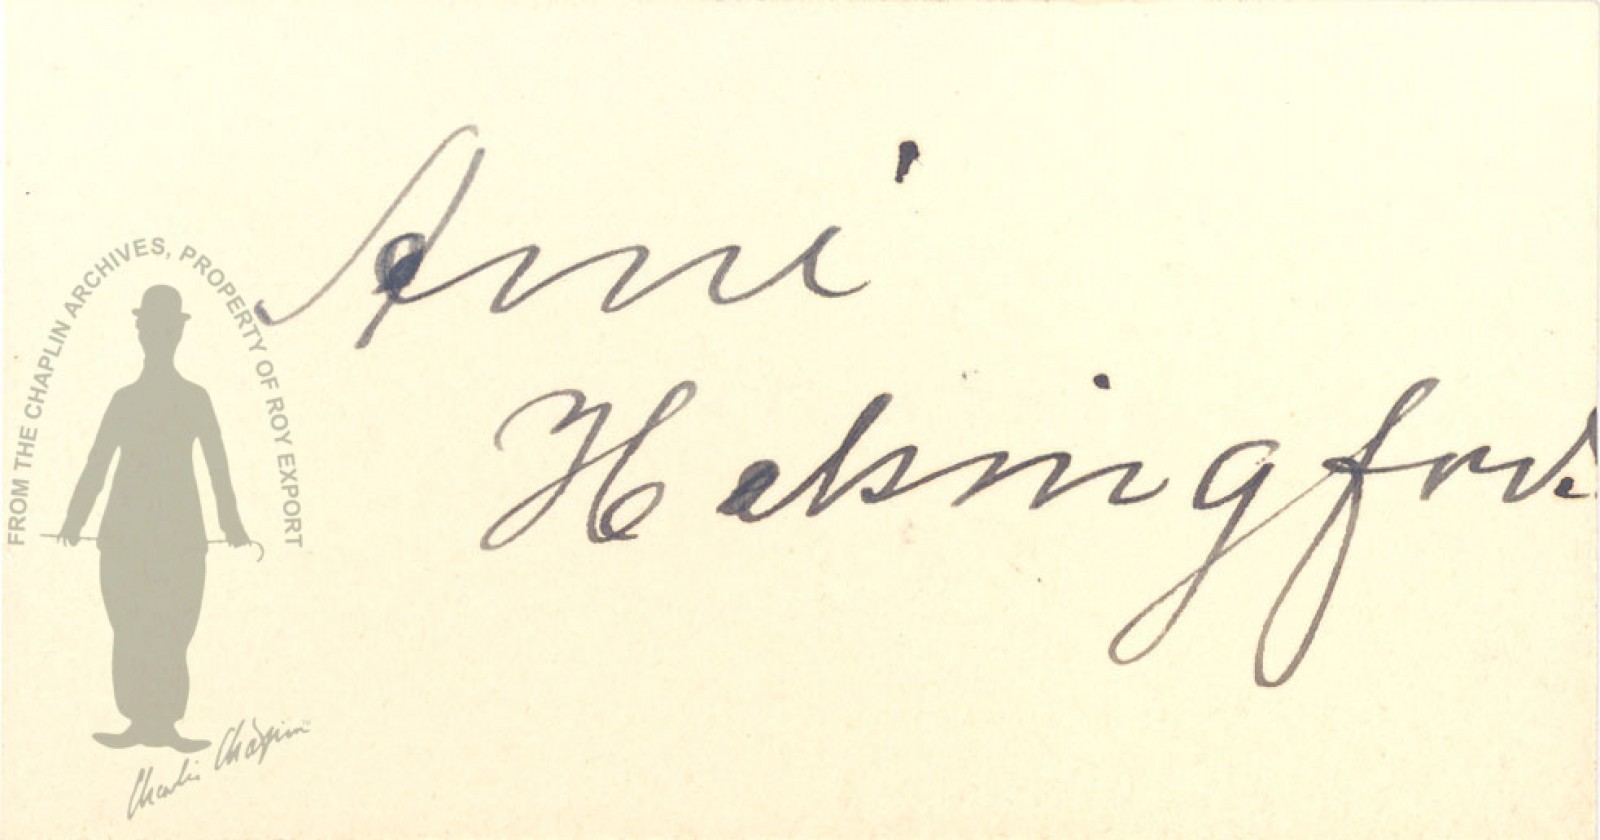 Anni
Helsingfors.
FROM THE CHAPLIN ARCHIVES, PROPERTY OF ROY EXPORT
Charlie Chaplin™